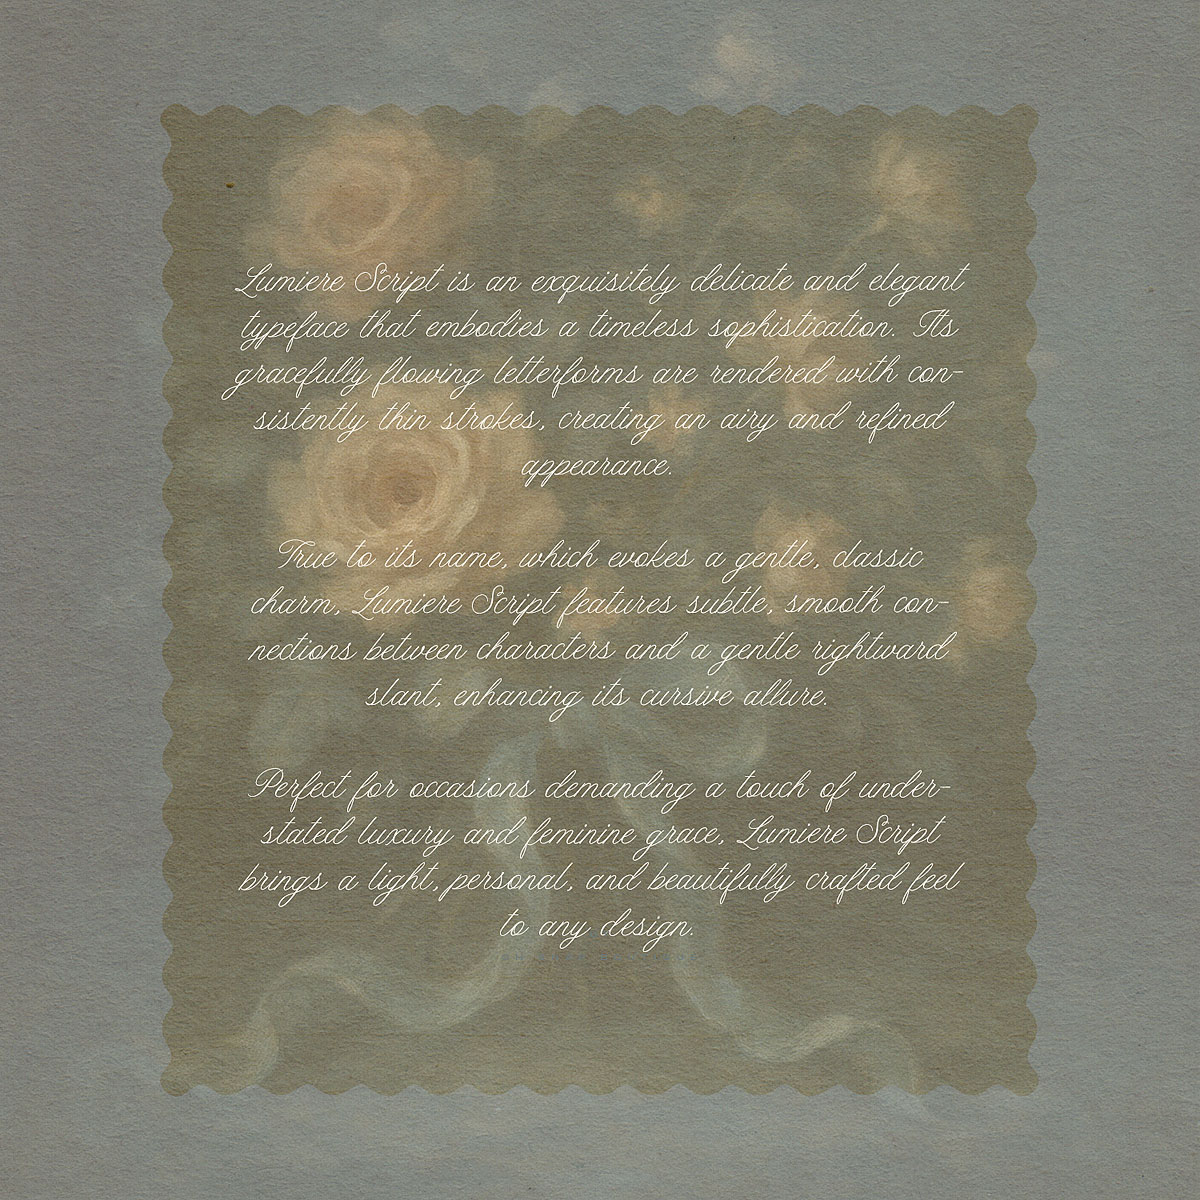 Lumiere Script is an exquisitely delicate and elegant
typeface that embodies a timeless sophistication. Its
gracefully flowing letterforms are rendered with con-
sistently thin strokes, creating an airy and refined
appearance.
True to its name, which evokes a gentle, classic
charm, Lumiere Script features subtle, smooth con-
nections between characters and a gentle rightward
slant, enhancing its cursive allure.
Perfect for occasions demanding a touch of under-
stated luxury and feminine grace, Lumiere Script
brings a light, personal, and beautifully crafted feel
to any design.